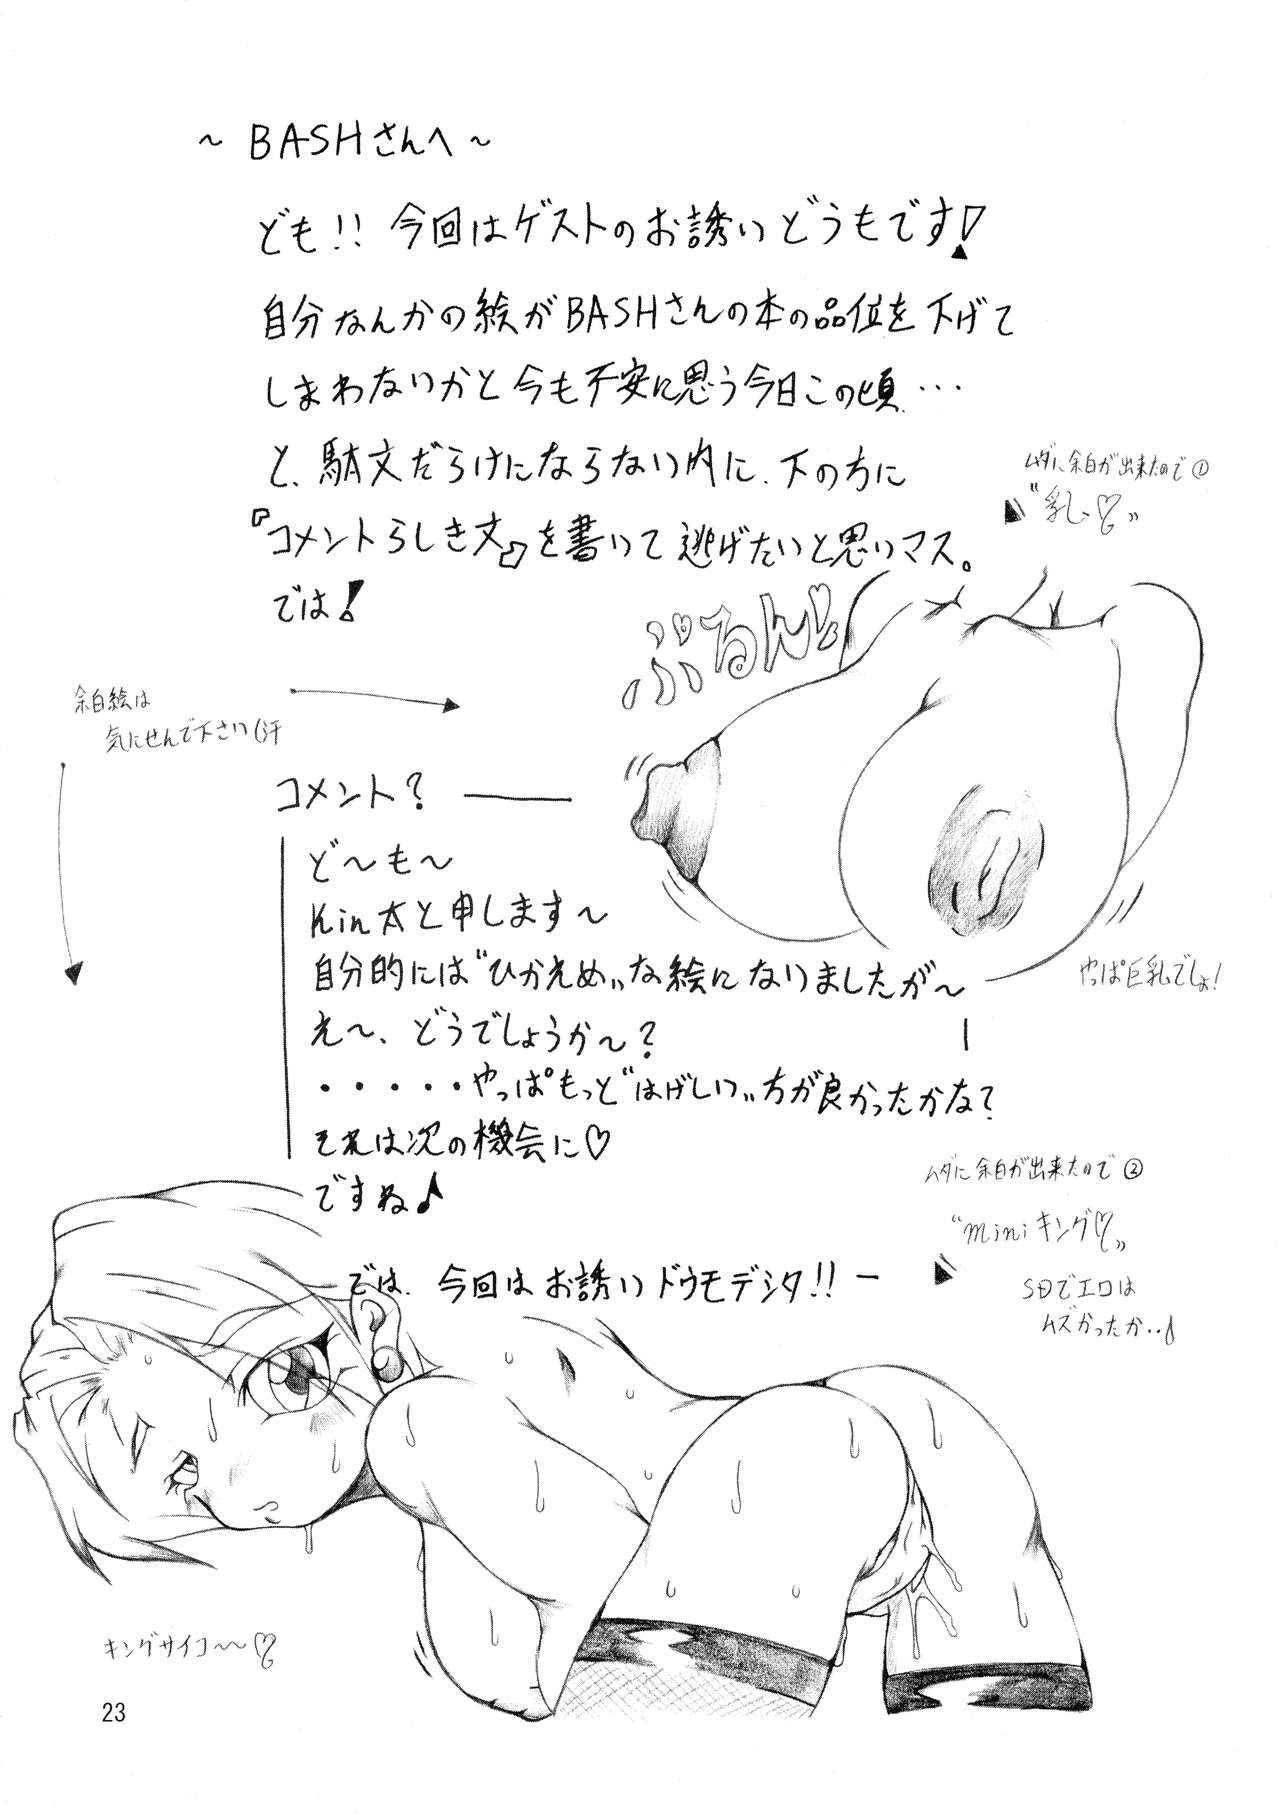 ～BASHさんへ～
ども!! 今回はゲストのお誘いどうもです!
自分なんかの絵がBASHさんの本の品位を下げて
しまわないかと今も不安に思う今日この頃…
と、駄文だらけにならない内に、下の方に
『コメントらしき文』を書いて逃げたいと思いマス。
では!
ムダに余白が出来たので①
"乳♡"
ぷるん♡
余白絵は
気にせんで下さい(汗
コメント?
ど～も～
Kin太と申します～
自分的には"ひかえめ"な絵になりましたが～
え～、どうでしょうか～?
・・・・・やっぱもっと"はげしい"方が良かったかな?
それは次の機会に♡
ですね♪
やっぱ巨乳でしょ!
では、今回はお誘いドウモデシタ!!
ムダに余白が出来たので②
"miniキング♡"
SDでエロは
ムズかったか‥♪
キングサイコ～～♡
23